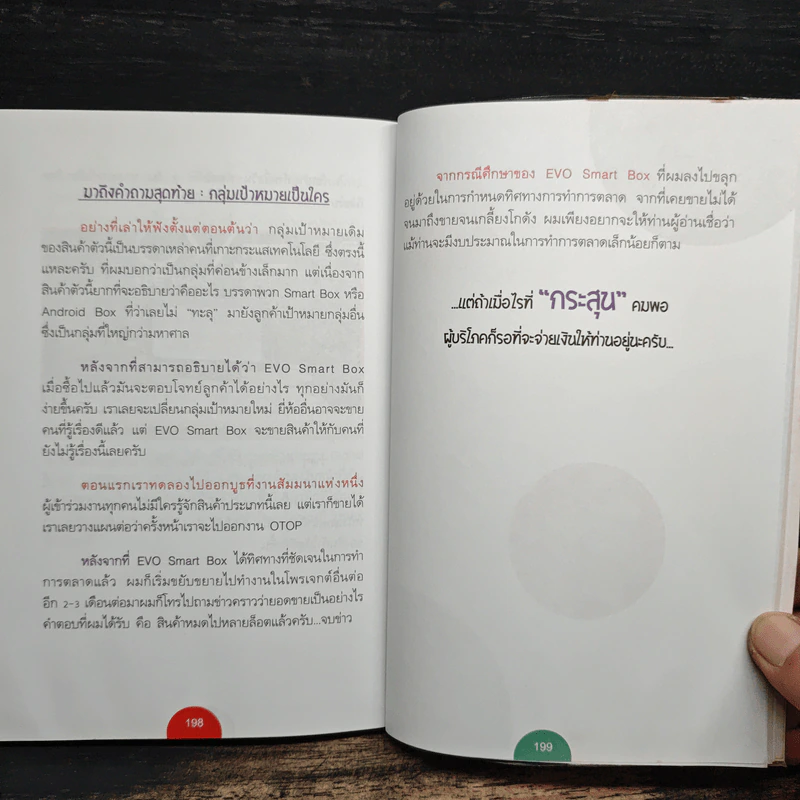 มาถึงคำถามสุดท้าย : กลุ่มเป้าหมายเป็นใคร
อย่างที่เล่าให้ฟังตั้งแต่ตอนต้นว่า กลุ่มเป้าหมายเดิม
ของสินค้าตัวนี้เป็นบรรดาเหล่าคนที่เกาะกระแสเทคโนโลยี ซึ่งตรงนี้
แหละครับ ที่ผมบอกว่าเป็นกลุ่มที่ค่อนข้างเล็กมาก แต่เนื่องจาก
สินค้าตัวนี้ยากที่จะอธิบายว่าคืออะไร บรรดาพวก Smart Box หรือ
Android Box ที่ว่าเลยไม่ "ทะลุ" มายังลูกค้าเป้าหมายกลุ่มอื่น
ซึ่งเป็นกลุ่มที่ใหญ่กว่ามหาศาล
หลังจากที่สามารถอธิบายได้ว่า EVO Smart Box
เมื่อซื้อไปแล้วมันจะตอบโจทย์ลูกค้าได้อย่างไร ทุกอย่างมันก็
ง่ายขึ้นครับ เราเลยจะเปลี่ยนกลุ่มเป้าหมายใหม่ ยี่ห้ออื่นอาจจะขาย
คนที่รู้เรื่องดีแล้ว แต่ EVO Smart Box จะขายสินค้าให้กับคนที่
ยังไม่รู้เรื่องนี้เลยครับ
ตอนแรกเราทดลองไปออกบูธที่งานสัมมนาแห่งหนึ่ง
ผู้เข้าร่วมงานทุกคนไม่มีใครรู้จักสินค้าประเภทนี้เลย แต่เราก็ขายได้
เราเลยวางแผนต่อว่าครั้งหน้าเราจะไปออกงาน OTOP
หลังจากที่ EVO Smart Box ได้ทิศทางที่ชัดเจนในการทำ
การตลาดแล้ว ผมก็เริ่มขยับขยายไปทำงานในโพรเจกต์อื่นต่อ
อีก 2-3 เดือนต่อมาผมก็โทรไปถามข่าวคราวว่ายอดขายเป็นอย่างไร
คำตอบที่ผมได้รับ คือ สินค้าหมดไปหลายล็อตแล้วครับ...จบข่าว
198
จากกรณีศึกษาของ EVO Smart Box ที่ผมลงไปขลุก
อยู่ด้วยในการกำหนดทิศทางการทำการตลาด จากที่เคยขายไม่ได้
จนมาถึงขายจนเกลี้ยงโกดัง ผมเพียงอยากจะให้ท่านผู้อ่านเชื่อว่า
แม้ท่านจะมีงบประมาณในการทำการตลาดเล็กน้อยก็ตาม
...แต่ถ้าเมื่อไรที่ "กระสุน" คมพอ
ผู้บริโภคก็รอที่จะจ่ายเงินให้ท่านอยู่นะครับ...
199